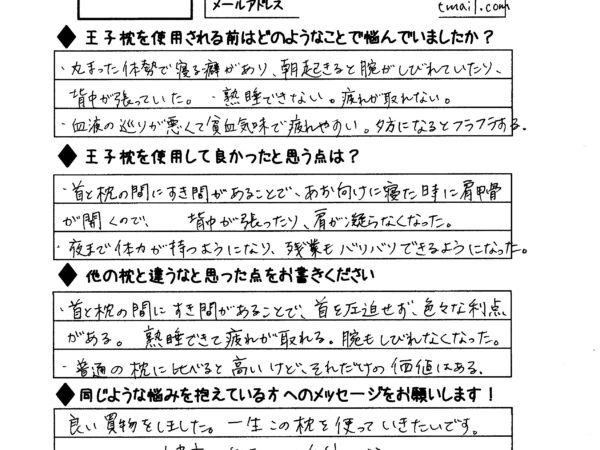 メールアドレス
tmail.com
◆王子枕を使用される前はどのようなことで悩んでいましたか？
・丸まった体勢で寝る癖があり、朝起きると腕がしびれていたり、
背中が張っていた。・熟睡できない。疲れが取れない。
・血液の巡りが悪くて貧血気味で疲れやすい。夕方になるとフラフラする.
◆王子枕を使用して良かったと思う点は？
・首と枕の間にすき間があることで、あお向けに寝た時に肩甲骨
が開くので、 背中が張ったり、肩が凝らなくなった。
・夜まで体力が持つようになり、残業もバリバリできるようになった。
◆他の枕と違うなと思った点をお書きください
・首と枕の間にすき間があることで、首を圧迫せず、色々な利点
がある。 熟睡できて疲れが取れる。腕もしびれなくなった。
・普通の枕に比べると高いけど、それだけの価値はある.
◆同じような悩みを抱えている方へのメッセージをお願いします！
良い買物をしました。一生この枕を使っていきたいです。